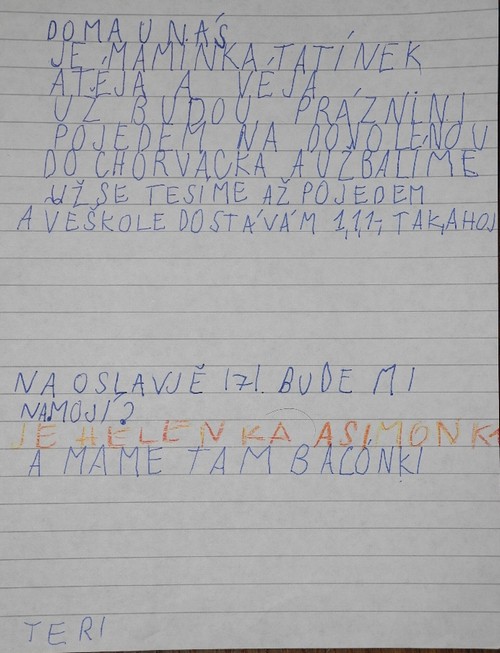 DOMA U NÁŠ
JE MAMINKA, TATÍNEK
A TÉJA A VÉJA
UŽ BUDOU PRÁZNÍNI
POJEDEM NA DOVOLENOU
DO CHORVACKA A UŽ BALÍME
UŽ SE TESÍME AŽ POJEDEM
A VEŠKOLE DOSTÁVÁM 1,1,1-, TAK, AHOJ
NA OSLAVJĚ BUDE MI
NAMOJÍ?
JE HELENKA ASIMONKA
A MAME TAM BALÓNKI
TERI